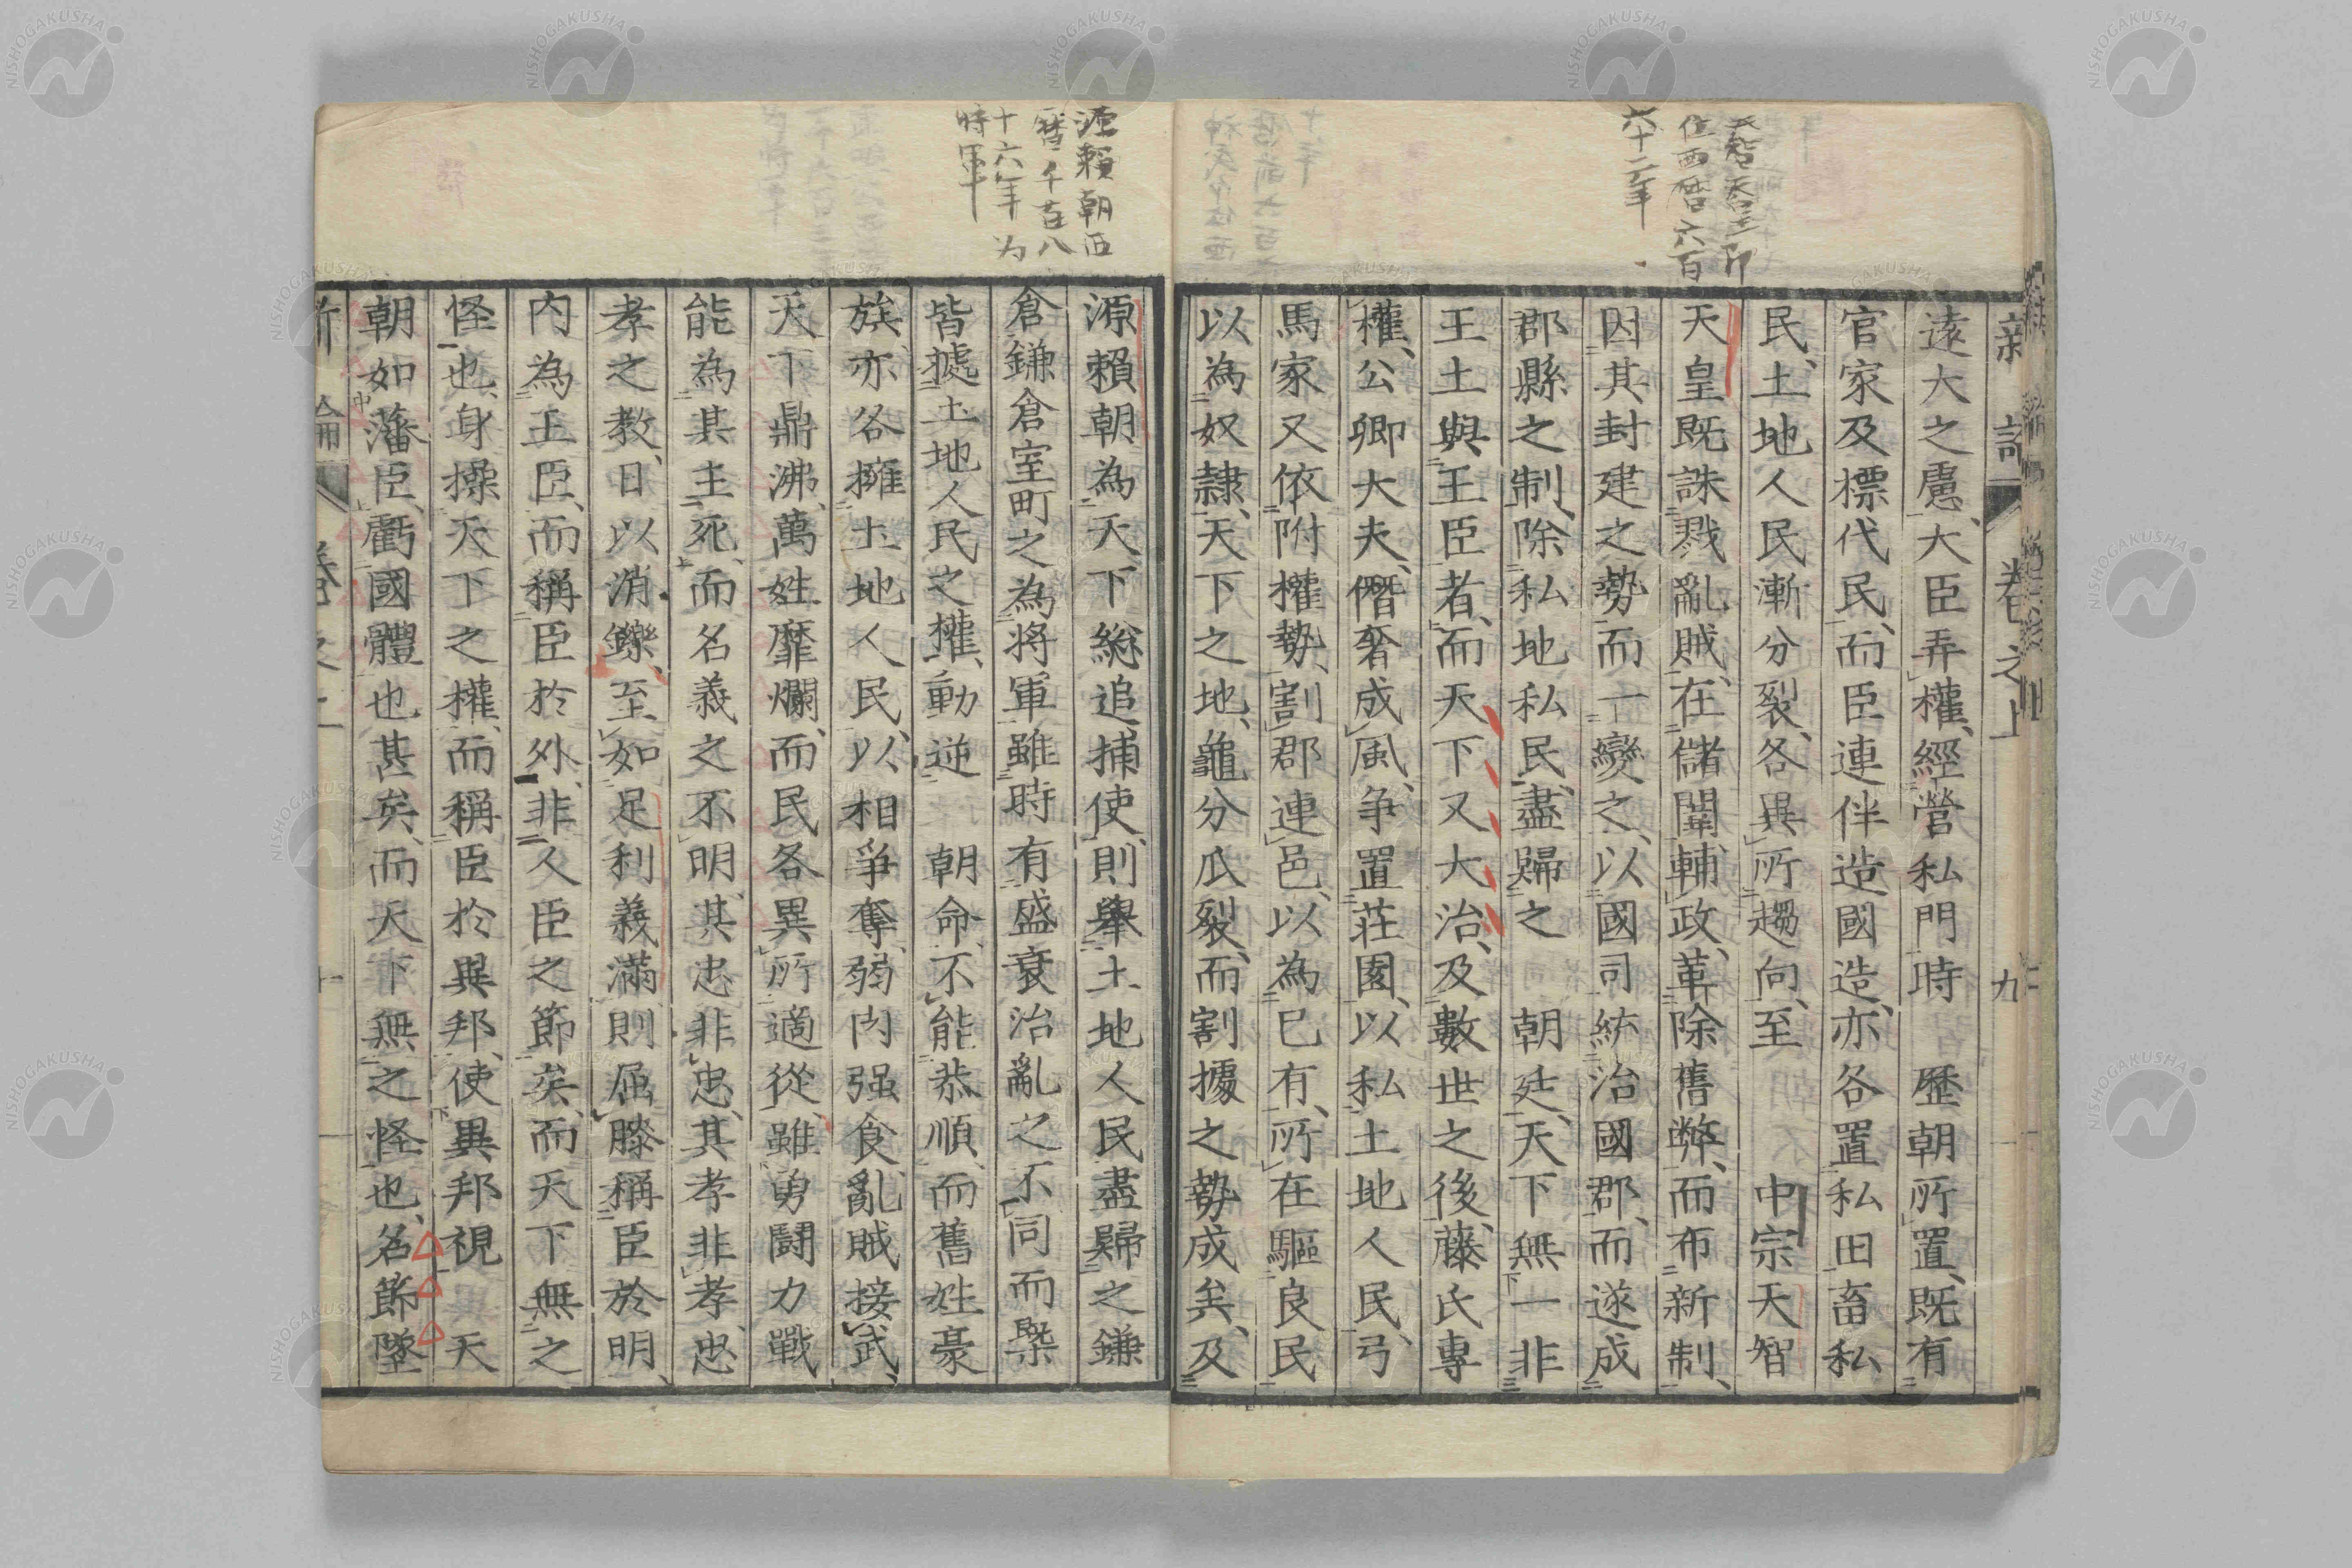 天智天皇即
位西暦六百
六十二年
新論 卷之上 九
遠大之慮、大臣弄權、經營私門時　歷朝所置、既有
官家及標代民、而臣連伴造國造、亦各置私田畜私
民、土地人民漸分裂、各異所趨向、至　　中宗天智
天皇既誅戮亂賊、在儲闈輔政、革除舊弊、而布新制、
因其封建之勢而一變之、以國司統治國郡、而遂成
郡縣之制、除私地私民、盡歸之　朝廷、天下無一非
王土與王臣者、而天下又大治、及數世之後、藤氏專
權、公卿大夫、僭奢成風、争置莊園、以私土地人民、弓
馬家又依附權勢、割郡連邑、以為已有、所在驅良民
以為奴隷、天下之地、龜分瓜裂、而割據之勢成矣、及
源賴朝西
暦千百八
十六年为
將軍
源賴朝為天下總追捕使、則舉土地人民盡歸之鎌
倉鎌倉室町之為将軍雖時有盛衰治亂之不同而槩
皆據土地人民之權、動逆　朝命、不能恭順、而舊姓豪
族、亦各擁土地人民、以相爭奪、弱肉强食、亂賊接武、
天下鼎沸、萬姓靡爛、而民各異所適從、雖勇鬪力戰
能為其主死、而名義之不明、其忠非忠、其孝非孝、忠
孝之教、日以消鑠、至如足利義滿則屈膝稱臣於明、
内為王臣、而稱臣於外、非人臣之節矣、而天下無之
怪也、身操天下之權、而稱臣於異邦、使異邦視　天
朝如藩臣、虧國體也甚矣、而天下無之怪也、名節墜
新論 卷之上 十